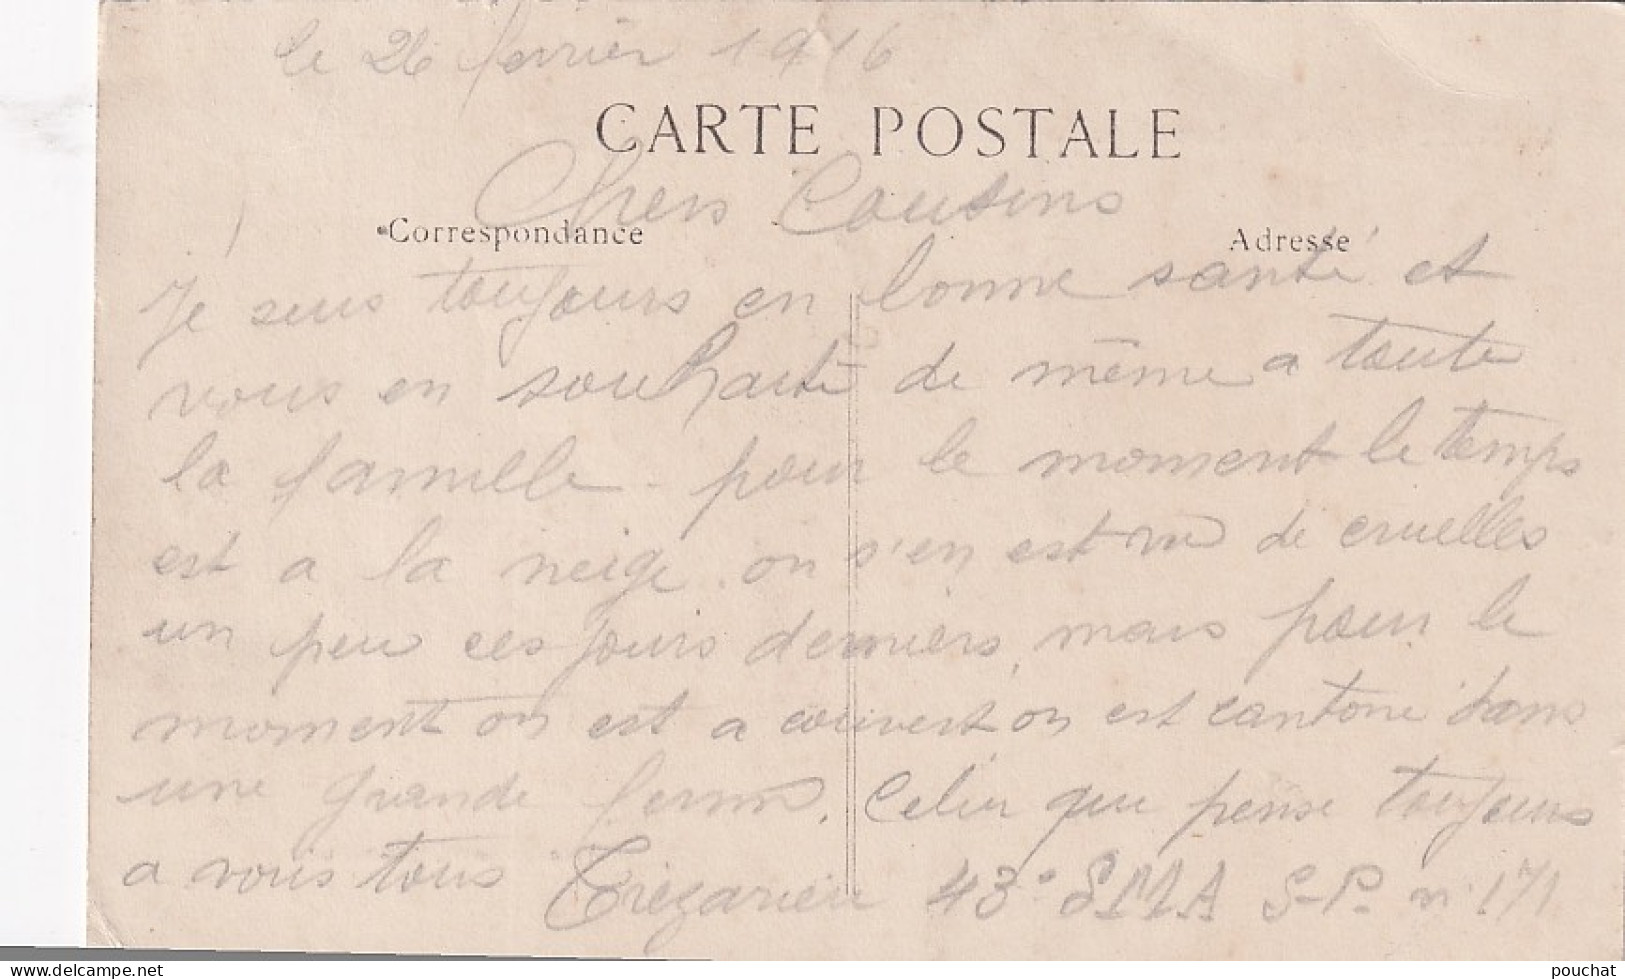 le 26 fevrier 1916
CARTE POSTALE
Chers Cousins
Correspondance
Adresse
Je suis toujours en bonne santé et
vous en souhaite de même a toute
la famille - pour le moment le temps
est a la neige. on s'en est vu de cruelles
un peu ces jours derniers, mais pour le
moment on est a couvert on est cantoné dans
une grande ferme. Celui qui pense toujours
a vous tous 43e SMA S-P. n 171
www.delcampe.net
pouchat